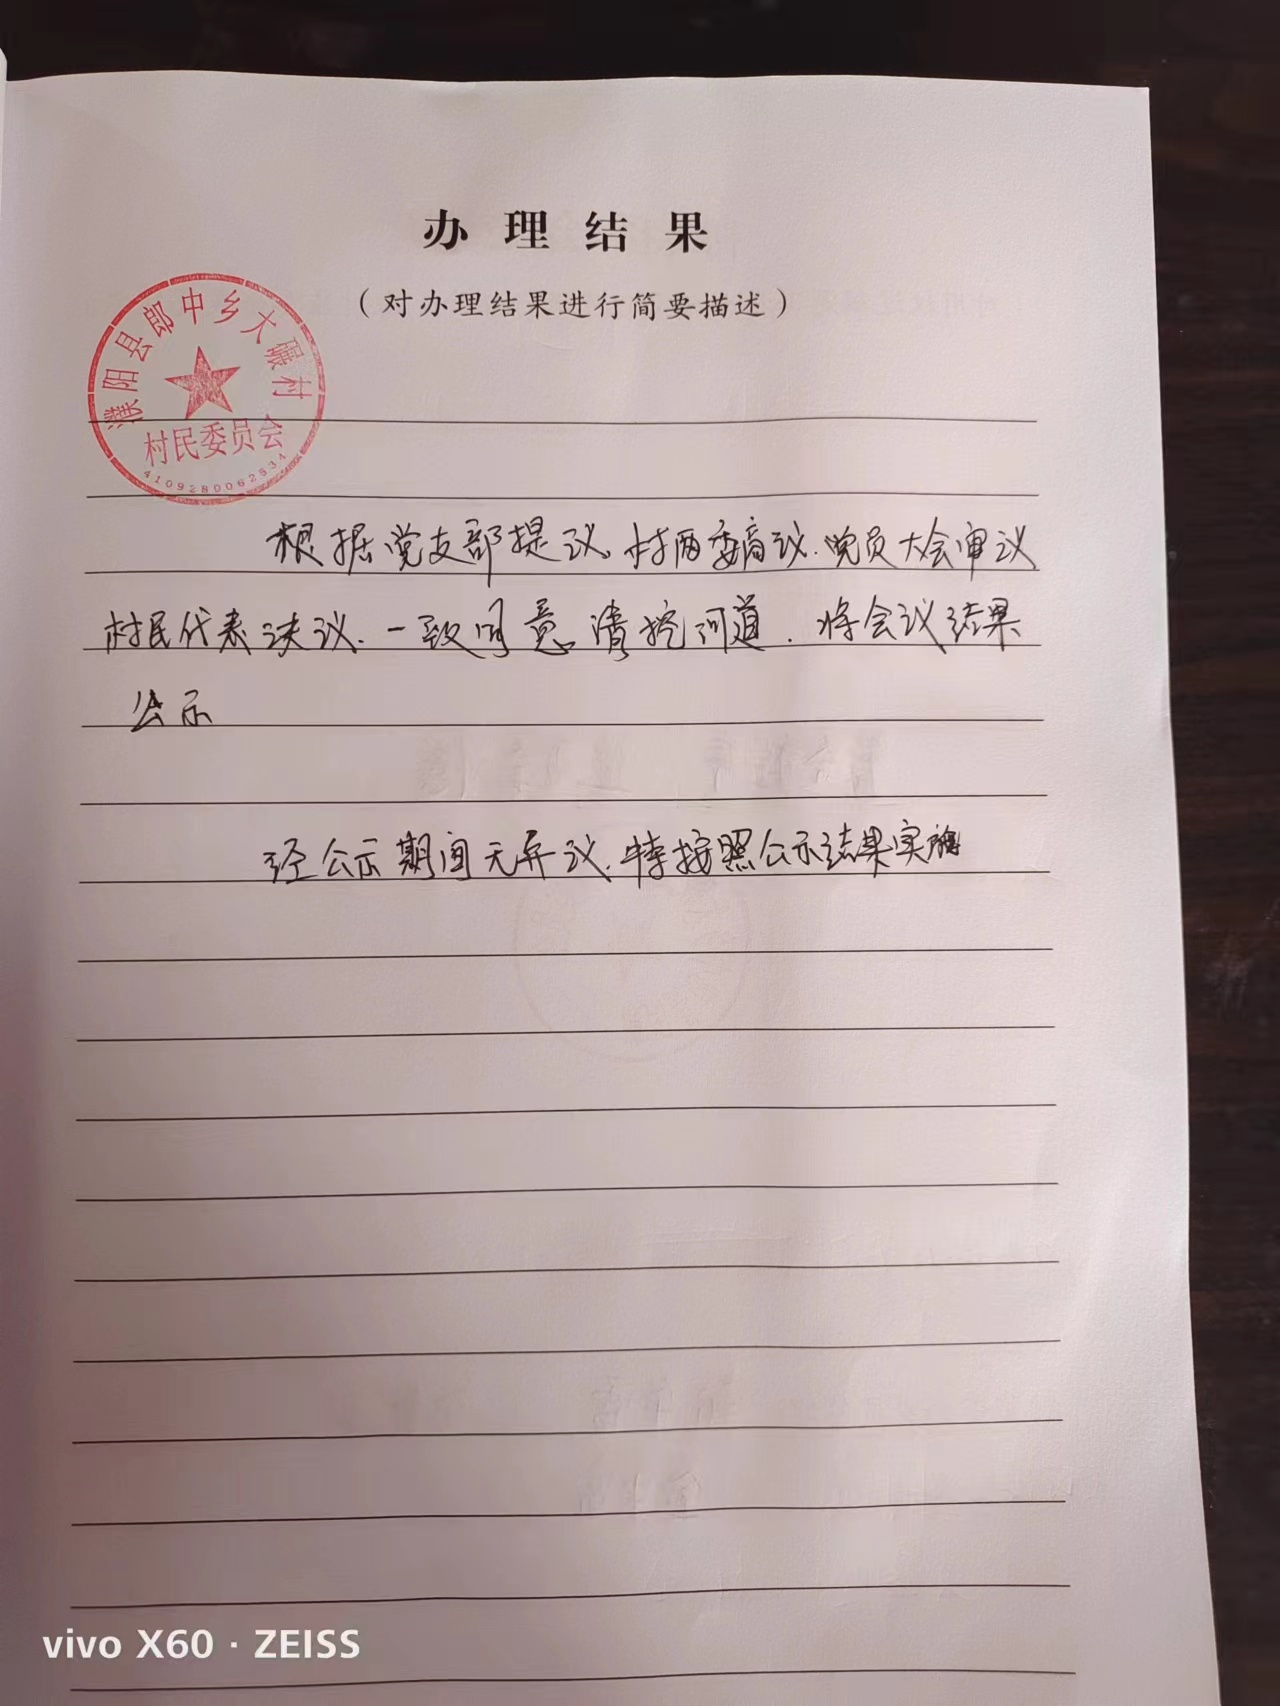 办理结果
（对办理结果进行简要描述）
濮阳县郎中乡大碾村
村民委员会
4109280062534
根据党支部提议、村两委商议、党员大会审议
村民代表决议、一致同意清挖河道、将会议结果
公示
经公示期间无异议、特按照公示结果实施
vivo X60 · ZEISS